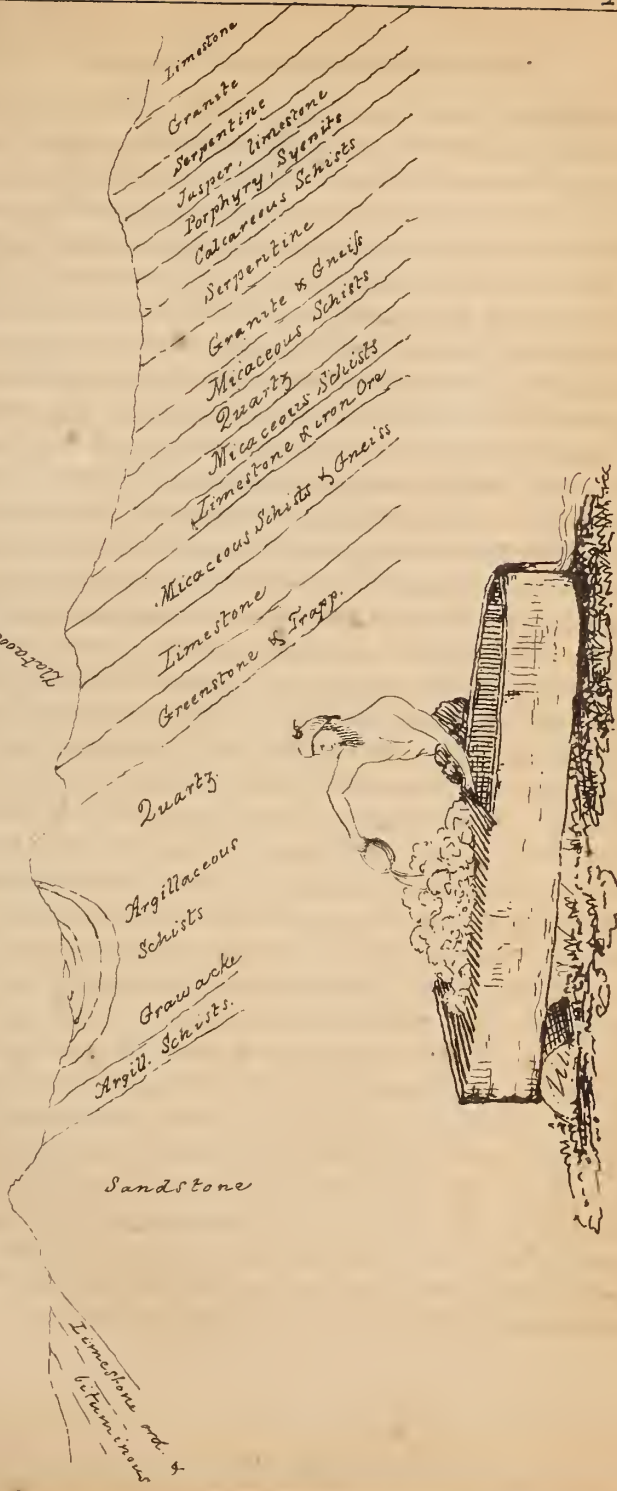 Limestone
Granite
Serpentine
Jasper, limestone
Porphyry, Syenits
Calcareous Schists
Serpentine
Granite & Gneiss
Micaceous Schists
Quartz
Micaceous Schists
Limestone & iron Ore
Micaceous Schists & Gneiss
Limestone
Greenstone & Trapp.
Quartz.
Argillaceous
Schists
Grawacke
Argill. Schists.
Sandstone
Limestone ord. &
bituminous